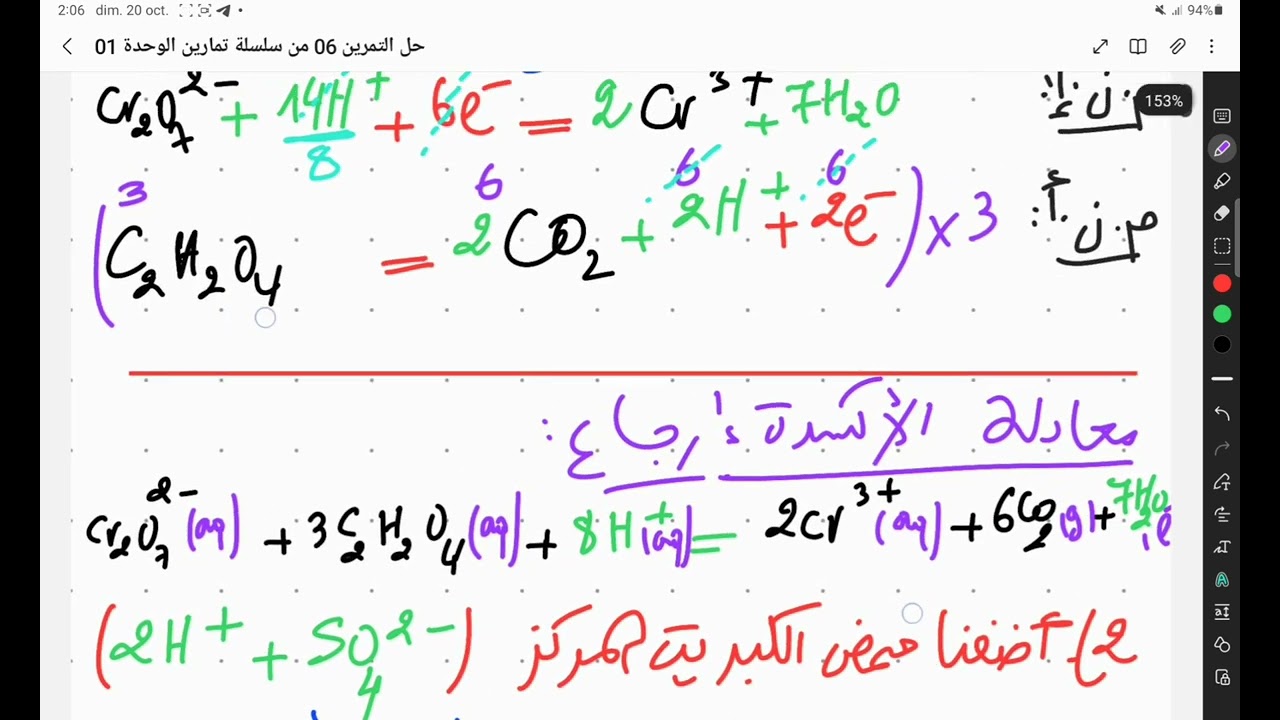 2:06 dim. 20 oct. 94%
حل التمرين 06 من سلسلة تمارين الوحدة 01
153%
Cr₂O₇²⁻ + 14H⁺ + 6e⁻ = 2Cr³⁺ + 7H₂O م.ن.إ:
8
3 6 6 6
(C₂H₂O₄ = 2CO₂ + 2H⁺ + 2e⁻) x 3 م.ن.أ:
معادلة الأكسدة إرجاع:
Cr₂O₇²⁻(aq) + 3C₂H₂O₄(aq) + 8H⁺(aq) = 2Cr³⁺(aq) + 6CO₂(g) + 7H₂O(l
2)- أضفنا حمض الكبريت المركز (2H⁺ + SO₄²⁻)